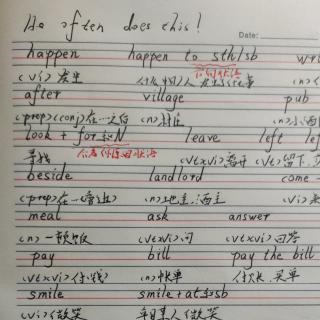 He often does this!
Date:
happen happen to sth/sb
(vi) 发生 某人发生某事
不可状语
after village pub
(prep)(conj) 在…之后 (n) 村庄 (n)
look + for sb/N leave left
寻找 (vt&vi) 离开 (vt) 留下
beside landlord come
(prep) 在…旁边 (n) 地主, 酒主
meal ask answer
(n) 一顿饭 (vt&vi) 问 (vt&vi) 回答
pay bill pay the bill
(vt&vi) 付(钱) (n) 帐单 付款, 买单
smile smile + at sb
(vi) 微笑 微笑